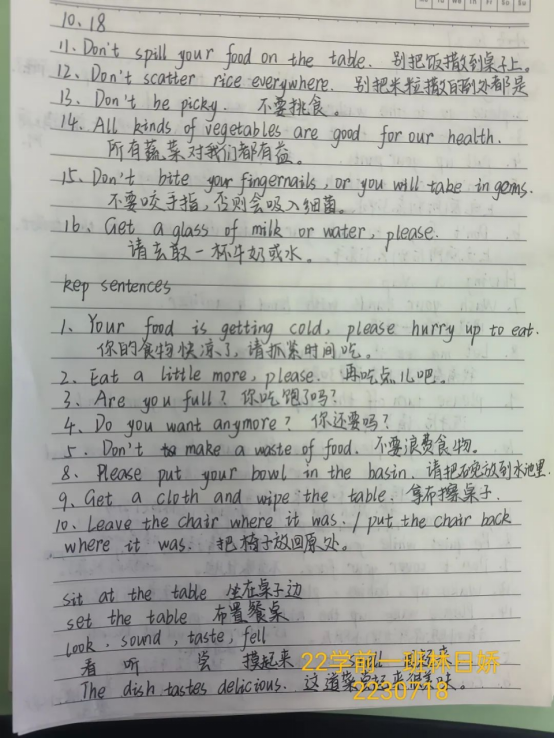 10.18
11. Don't spill your food on the table. 别把饭撒到桌子上。
12. Don't scatter rice everywhere. 别把米粒撒得到处都是
13. Don't be picky. 不要挑食。
14. All kinds of vegetables are good for our health.
所有蔬菜对我们都有益。
15. Don't bite your fingernails, or you will take in gems.
不要咬手指,否则会吸入细菌。
16. Get a glass of milk or water, please.
请去取一杯牛奶或水。
kep sentences
1. Your food is getting cold, please hurry up to eat.
你的食物快凉了,请抓紧时间吃。
2. Eat a little more, please. 再吃点儿吧。
3. Are you full? 你吃饱了吗?
4. Do you want anymore? 你还要吗?
5. Don't make a waste of food. 不要浪费食物。
8. Please put your bowl in the basin. 请把碗放到水池里.
9. Get a cloth and wipe the table. 拿布擦桌子.
10. Leave the chair where it was. / put the chair back
where it was. 把椅子放回原处。
sit at the table 坐在桌子边
set the table 布置餐桌
look. sound, taste, fell
看 听 尝 摸起来
The dish tastes delicious. 这道菜
22学前一班林日娇
2230718